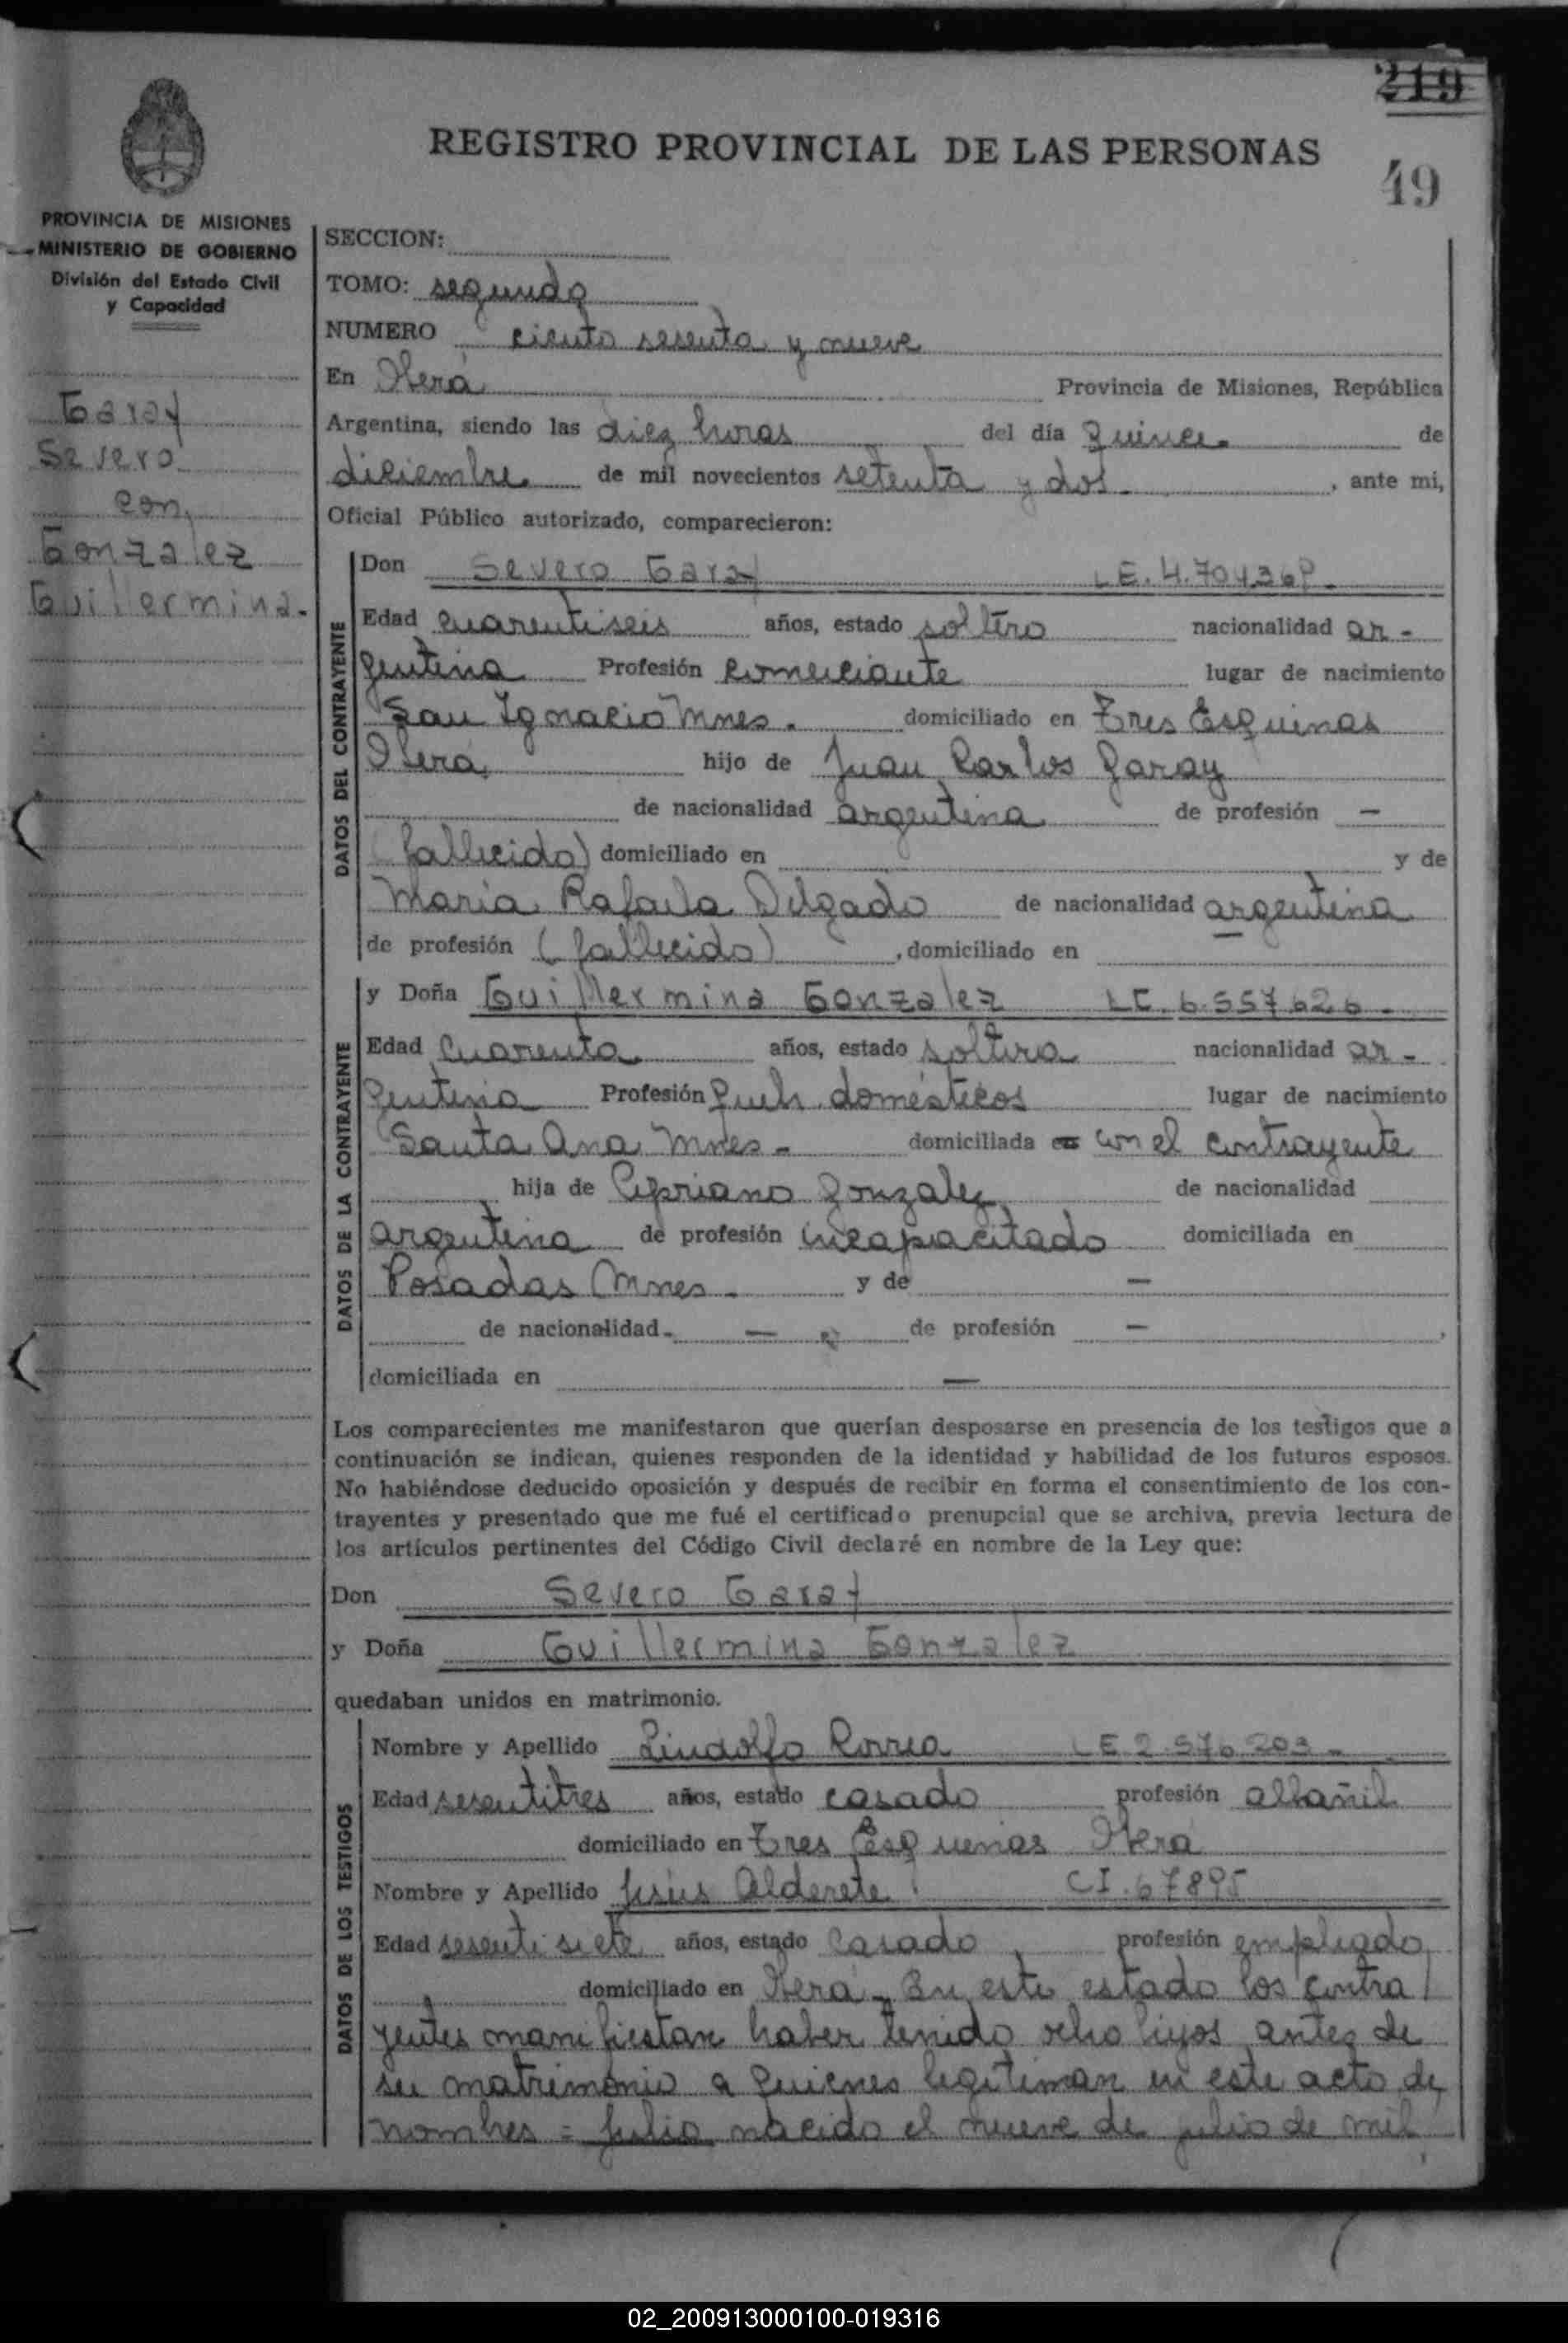 219
REGISTRO PROVINCIAL DE LAS PERSONAS
49
PROVINCIA DE MISIONES
MINISTERIO DE GOBIERNO
División del Estado Civil
y Capacidad
Garay
Severo
con
Gonzalez
Guillermina.
SECCION:
TOMO: segundo
NUMERO ciento sesenta y nueve
En Oberá Provincia de Misiones, República
Argentina, siendo las diez horas del día Quince de
diciembre de mil novecientos setenta y dos , ante mi,
Oficial Público autorizado, comparecieron:
DATOS DEL CONTRAYENTE
Don Severo Garay LE.
Edad cuarentiseis años, estado soltero nacionalidad ar-
gentina Profesión comerciante lugar de nacimiento
San Ignacio Mnes. domiciliado en Tres Esquinas
Oberá hijo de Juan Carlos Garay
de nacionalidad argentina de profesión —
(fallecido) domiciliado en y de
María Rafaela Delgado de nacionalidad argentina
de profesión (fallecida) , domiciliado en
DATOS DE LA CONTRAYENTE
y Doña Guillermina Gonzalez LC. 6.557.626.
Edad Cuarenta años, estado soltera nacionalidad ar-
gentina Profesión Queh. domésticos lugar de nacimiento
Santa Ana Mnes- domiciliada en con el contrayente
hija de Cipriano Gonzalez de nacionalidad
argentina de profesión incapacitado domiciliada en
Posadas Mnes. y de —
de nacionalidad. — de profesión — ,
domiciliada en —
Los comparecientes me manifestaron que querían desposarse en presencia de los testigos que a
continuación se indican, quienes responden de la identidad y habilidad de los futuros esposos.
No habiéndose deducido oposición y después de recibir en forma el consentimiento de los con-
trayentes y presentado que me fué el certificado prenupcial que se archiva, previa lectura de
los artículos pertinentes del Código Civil declaré en nombre de la Ley que:
Don Severo Garay
y Doña Guillermina Gonzalez
quedaban unidos en matrimonio.
DATOS DE LOS TESTIGOS
Nombre y Apellido Lindolfo Correa LE 2.576.203-
Edad sesentitres años, estado casado profesión albañil
domiciliado en Tres Esquinas Oberá
Nombre y Apellido Jesús Alderete CI. 67895
Edad sesenti siete años, estado casado profesión empleado
domiciliado en Oberá - En este estado los contra
yentes manifiestan haber tenido ocho hijos antes de
su matrimonio a quienes legitiman en este acto de
nombres = Julio nacido el nueve de julio de mil
02_200913000100-019316